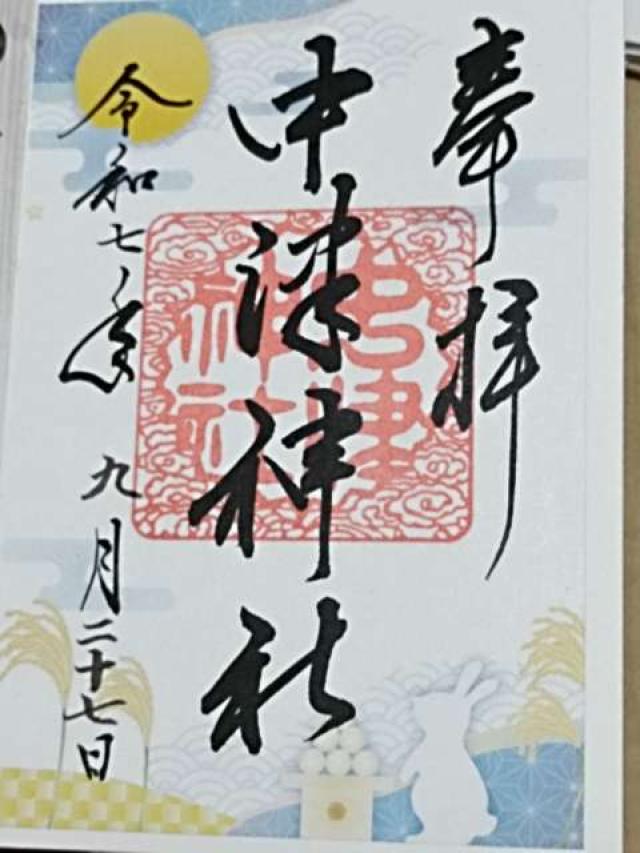 奉拝
中津神社
令和七年九月二十七日